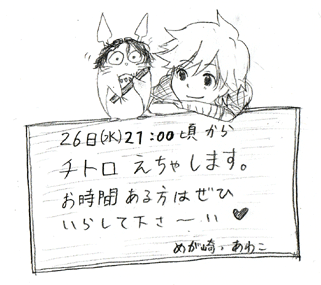 26日(水)21:00頃から
チトロ えちゃします。
お時間ある方はぜひ
いらして下さ〜い♥
めが崎、あわこ